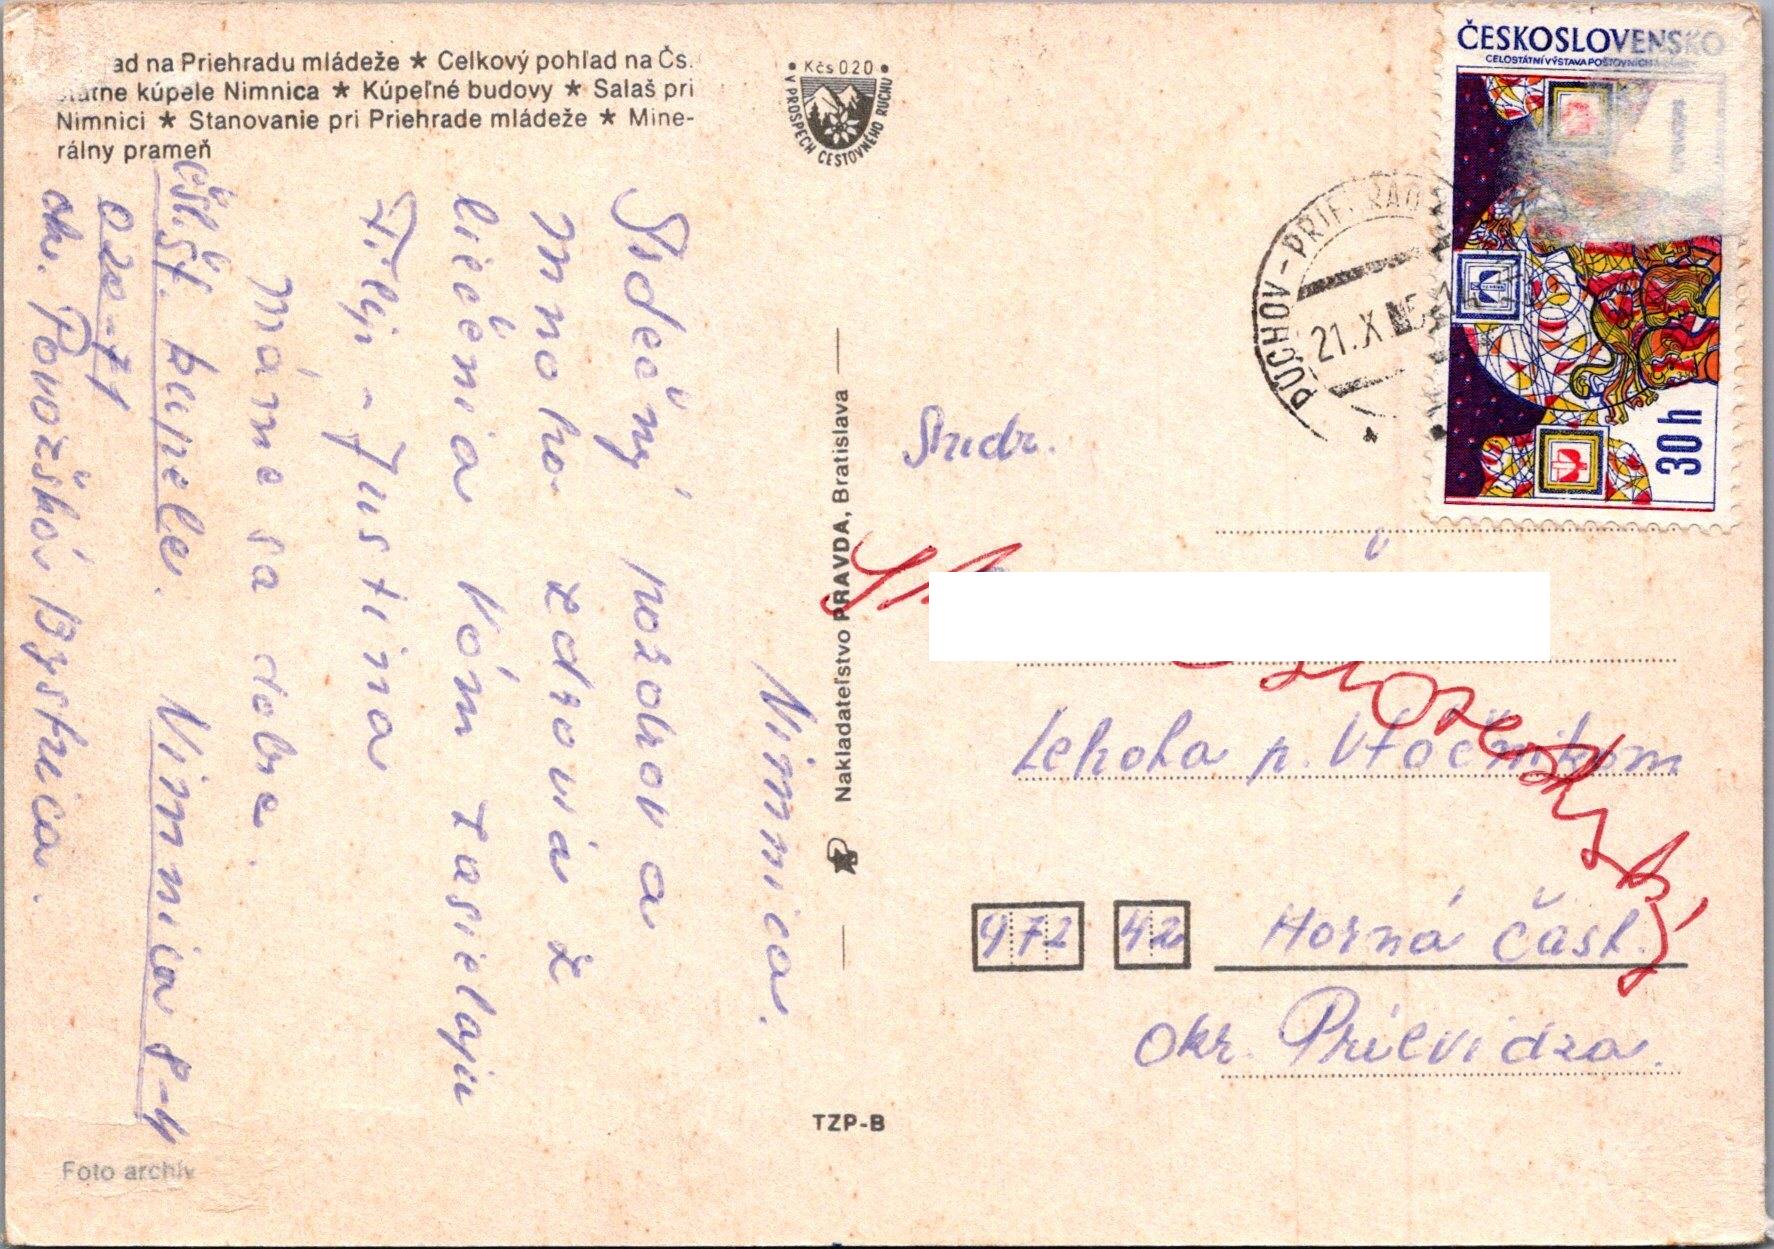 ad na Priehradu mládeže ★ Celkový pohľad na Čs.
státne kúpele Nimnica ★ Kúpeľné budovy ★ Salaš pri
Nimnici ★ Stanovanie pri Priehrade mládeže ★ Mine-
rálny prameň
Nimnica.
Srdečný pozdrav a
mnoho zdravia z
liečenia Vám zasielajú
Filip - Justina
Máme sa dobre.
Čsl. št. kupele. Nimnica 8-4
020-71
okr. Považská Bystrica.
Foto archív
• Kčs 0 20 •
V PROSPECH CESTOVNÉHO RUCHU
Nakladateľstvo PRAVDA, Bratislava
TZP-B
ČESKOSLOVENSKO
CELOSTÁTNÍ VÝSTAVA POŠTOVNÍCH
30 h
PÚCHOV - PRIEHRADA
21. X
Lehota p. Vtáčnikom
972 42 Horná časť.
okr. Prievidza.